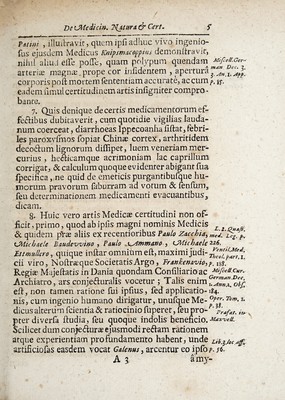 De Medicin. Natura & Cert. 5
Patini, illustravit, quem ipsi adhuc vivo ingenio-
sus ejusdem Medicus demonstravit,
nihil aliud esse posse, quam polypum quendam
arteriæ magnæ, prope cor insidentem, apertura
corporis post mortem sententiam accuratè, ac cum
eadem simul certitudinem artis insigniter compro-
bante.
7. Quis denique de certis medicamentorum ef-
fectibus dubitaverit, cum quotidie vigilias lauda-
num coerceat, diarrhoeas Ippecoanha sistat, febri-
les paroxysmos sopiat Chinæ cortex, arthritidem
decoctum lignorum dissipet, luem veneriam mer-
curius, hecticamque acrimoniam lac caprillum
corrigat, & calculum quoque evidenter abigant sua
specifica, ne quid de emeticis purgantibusque hu-
morum pravorum saburram ad votum & sensum,
seu determinationem medicamenti evacuantibus,
dicam.
8. Huic vero artis Medicæ certitudini non of-
ficit, primo, quod ab ipsis magni nominis Medicis
& quidem præ aliis ex recentioribus Paulo Zacchia,
Michaele Boudewino, Paulo Ammano, Michaele
Ettmullero, quique instar omnium est, maximi judi-
cii viro, Nostræque Societatis Argo, Frankenavio,
Regiæ Majestatis in Dania quondam Consiliario ac
Archiatro, ars conjecturalis vocetur; Talis enim
est, non tamen ratione sui ipsius, sed applicatio-
nis, cum ingenio humano dirigatur, unusque Me-
dicus alterum scientia & ratiocinio superet, seu pro-
pter diversa studia, seu quoque indolis beneficio.
Scilicet dum conjecturæ ejusmodi rectam rationem
atque experientiam pro fundamento habent, unde
artificiosas easdem vocat Galenus, arcentur eo ipso
A 3
amy-
Miscell. Ger-
man Dec. 3.
3. An. 1. App.
p. 85.
L. 2. Quæst.
med. leg. p.
226.
Ventil. Med.
Theol. part. 1.
Miscell. Cur.
German Dec.
2. Ann. 2. Obs.
184.
Oper. Tom. 2.
p. 38.
Præfat. in
Maxvell.
Lib. 3. loc. Aff.
p. 56.